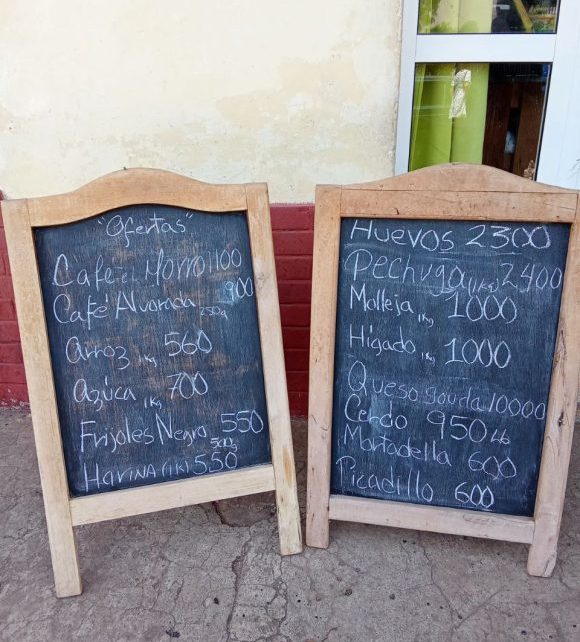 "Ofertas"
Café el Morro 1100
Café Alvorada 250g 900
Arroz 1Kg 560
Azúca 1Kg 700
Frijoles Negro 550
500g
Harina (1K) 550
Huevos 2300
Pechuga (1Kg) 2400
Molleja 1Kg 1000
Hígado 1Kg 1000
Queso gouda 10000
Cerdo 950 Lb
Mortadella 600
Picadillo 600